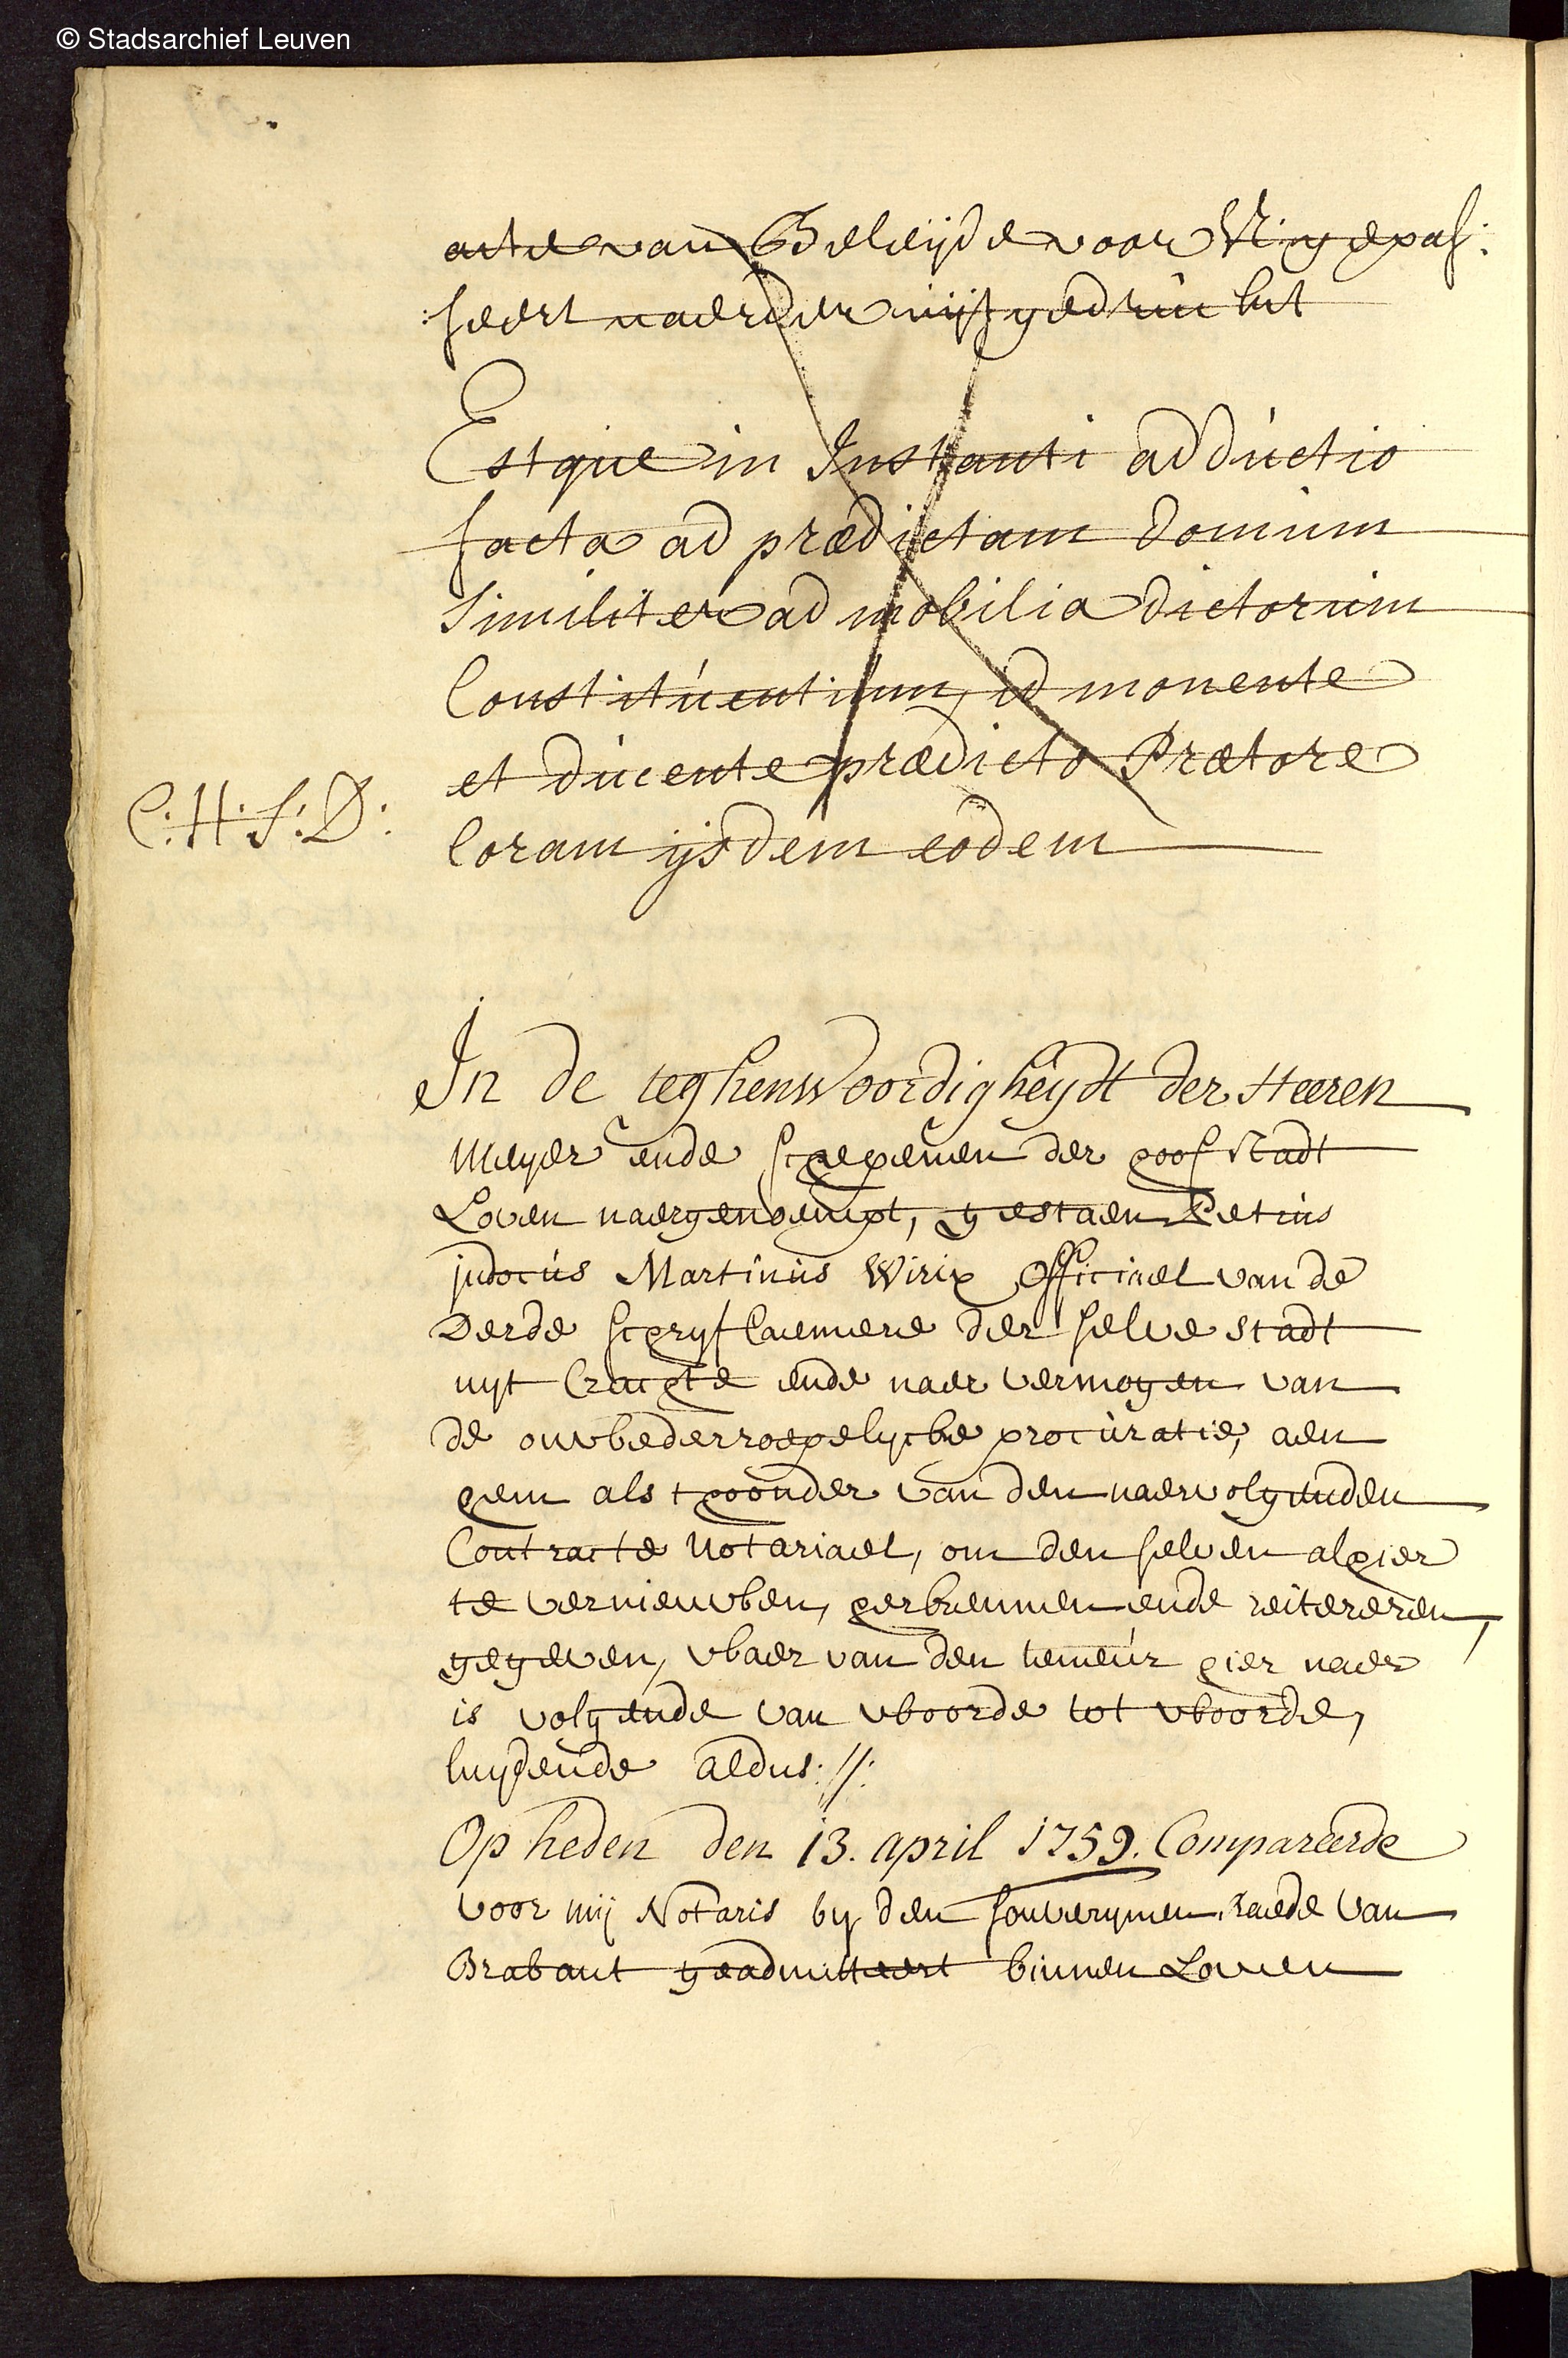 © Stadsarchief Leuven
acte van Beleijde voor V: gepas:
:seert naerder uijtgedruckt
Estque in Instanti adductio
facta ad prædictam domum
Similiter ad mobilia dictorum
Constitúentium, id monente
et dúcente prædicto Prætore
C: H: S: D:
Coram ijsdem eodem
In de teghenwoordigheijdt der Heeren
Meyer ende schepenen der hooftstadt
Loven naergenoempt, gestaen Petrus
judocús Martinús Wirix Officiael van de
Derde schryfcaemere der selve stadt
uyt Crachte ende naer vermogen van
de onwederroepelycke procúratie, aen
hem als thoonder van den naervolgenden
Contracte Notariael, om den selven alhier
te vernieuwen, herkennen ende reitereren,
gegeven, waer van den teneúr hier naer
is volgende van woorde tot woorde,
luydende aldus://:
Op heden den 13. april 1759. Compareerde
voor mij Notaris by den souverynen raede van
Brabant geadmitteert binnen Loven